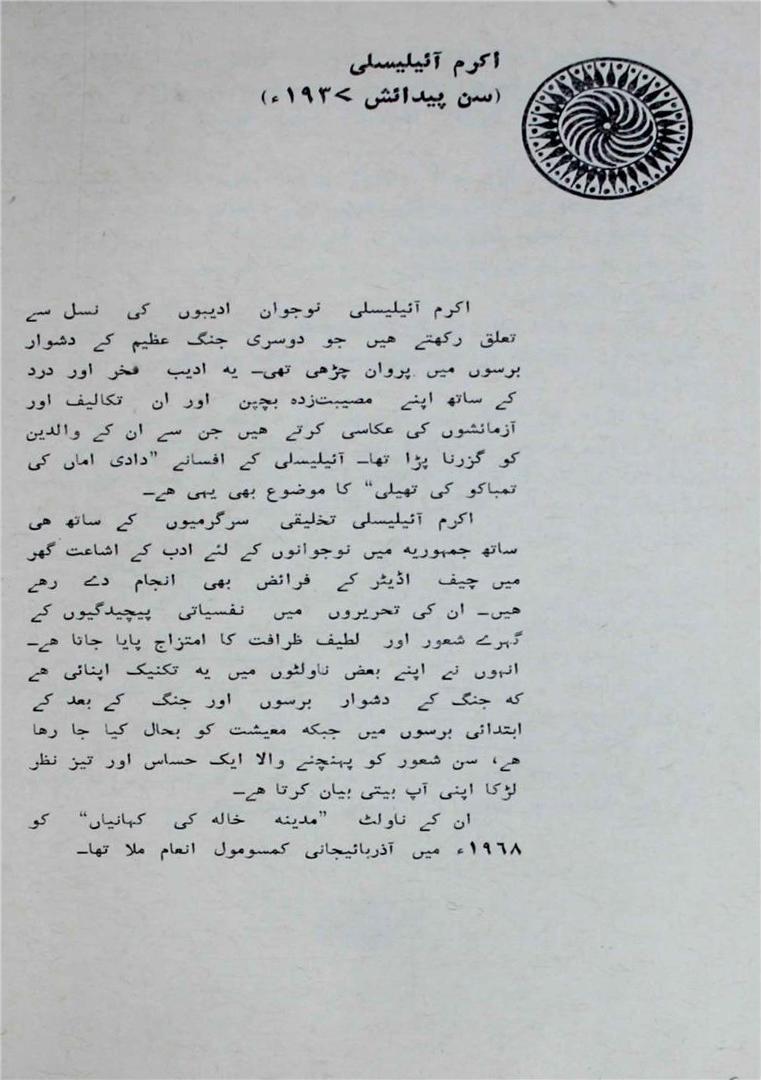 اکرم آئیلیسلی
(سن پیدائش ۱۹۳۷ء)
اکرم آئیلیسلی نوجوان ادیبوں کی نسل سے
تعلق رکھتے ہیں جو دوسری جنگ عظیم کے دشوار
برسوں میں پروان چڑھی تھی۔ یہ ادیب فخر اور درد
کے ساتھ اپنے مصیبت‌زدہ بچپن اور ان تکالیف اور
آزمائشوں کی عکاسی کرتے ہیں جن سے ان کے والدین
کو گزرنا پڑا تھا۔ آئیلیسلی کے افسانے ”دادی اماں کی
تمباکو کی تھیلی“ کا موضوع بھی یہی ہے۔
اکرم آئیلیسلی تخلیقی سرگرمیوں کے ساتھ ہی
ساتھ جمہوریہ میں نوجوانوں کے لئے ادب کے اشاعت گھر
میں چیف اڈیٹر کے فرائض بھی انجام دے رہے
ہیں۔ ان کی تحریروں میں نفسیاتی پیچیدگیوں کے
گہرے شعور اور لطیف ظرافت کا امتزاج پایا جاتا ہے۔
انہوں نے اپنے بعض ناولٹوں میں یہ تکنیک اپنائی ہے
کہ جنگ کے دشوار برسوں اور جنگ کے بعد کے
ابتدائی برسوں میں جبکہ معیشت کو بحال کیا جا رہا
ہے، سن شعور کو پہنچنے والا ایک حساس اور تیز نظر
لڑکا اپنی آپ بیتی بیان کرتا ہے۔
ان کے ناولٹ ”مدینہ خالہ کی کہانیاں“ کو
۱۹٦۸ء میں آذربائیجانی کمسومول انعام ملا تھا۔